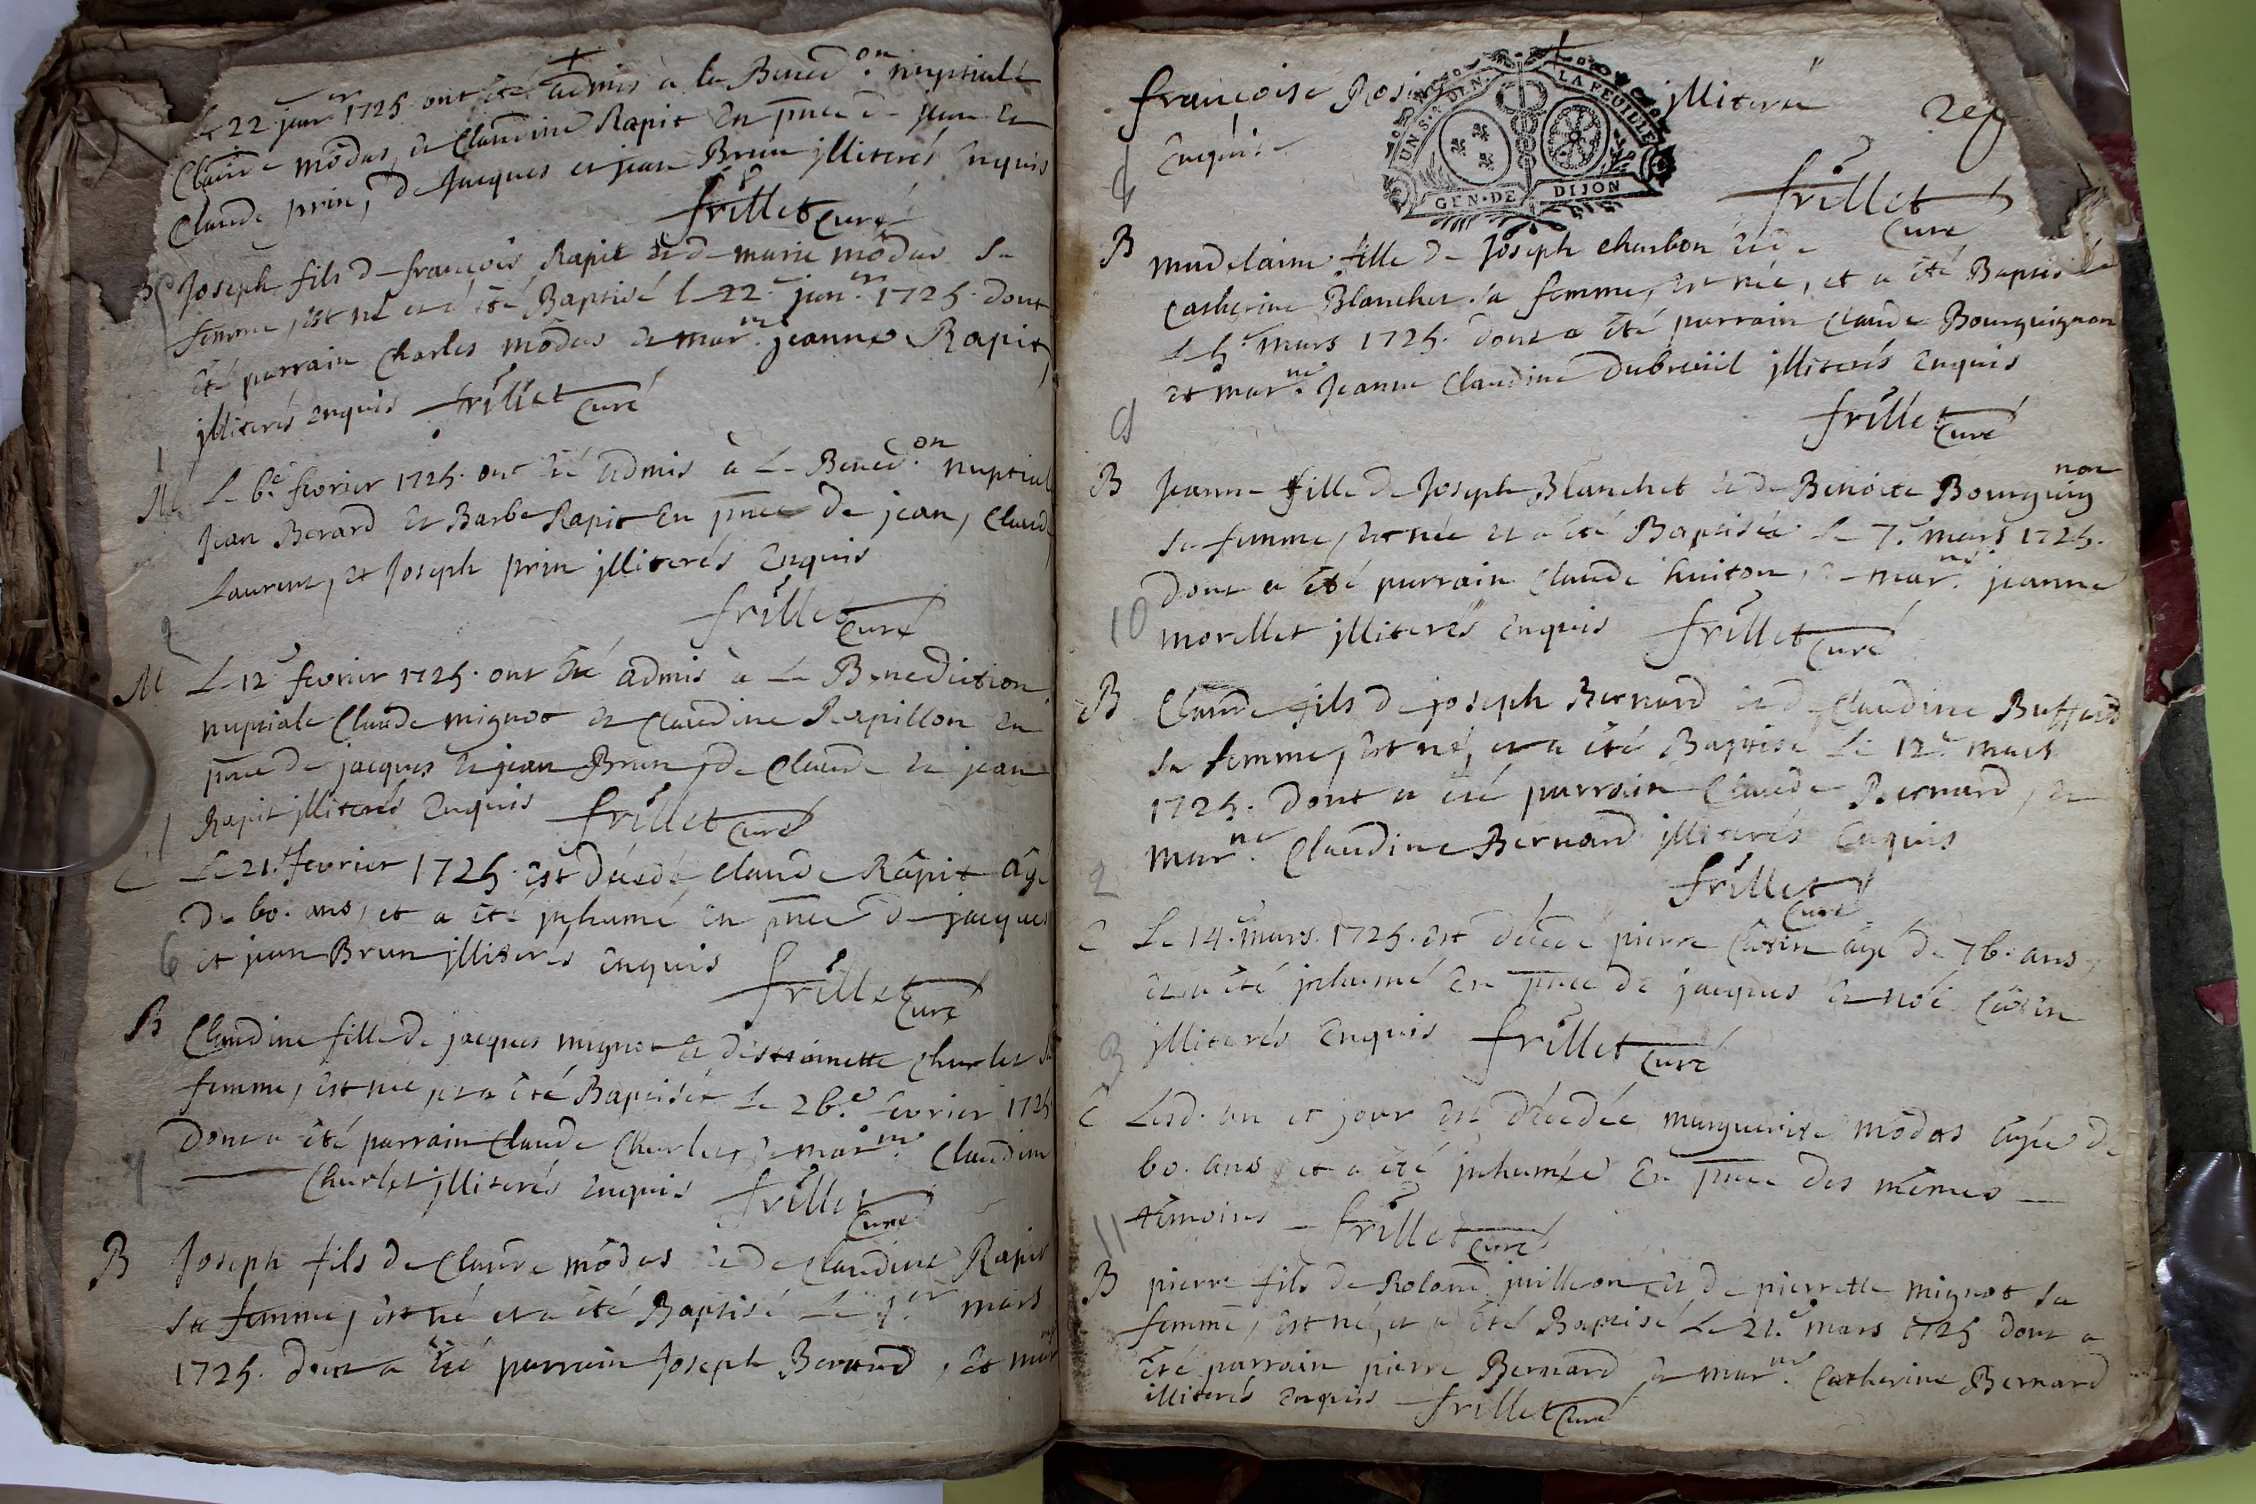 +
Le 22e janer 1725. ont été admis à la Benedon. nuptiale
Claude môdas, et Claudine Rapit En pnce de jean et
Claude prin, de Jacques et jean Brun jlliterés Enquis
frillet Curé
B Joseph fils de françois Rapit et de marie môdas sa
femme, est né et a été Baptisé le 22e janer. 1725. dont a
été parrain Charles môdas et marne. jeanne Rapit,
jlliterés Enquis frillet Curé
1
M Le 6e. fevrier 1725. ont été admis à la Benedon. nuptiale
Jean Berard et Barbe Rapit En pnce de jean, Claude
Laurent, et Joseph prin jlliterés Enquis
frillet Curé
2
M Le 12e fevrier 1725. ont été admis à la Benediction
nuptiale Claude mignot et Claudine Papillon En
pnce de jacques et jean Brun, de Claude et jean
Rapit jlliterés Enquis frillet Curé
1
C Le 21e. fevrier 1725. est décédé Claude Rapit âgé
de 60. ans, et a été jnhumé en pnce de jacques
et jean Brun jlliterés enquis frillet Curé
6
B Claudine fille de jacques mignot et d'estiennette Charlet sa
femme, est née, et a été Baptisée le 26.e fevrier 1725
Dont a été parrain Claude Charlet, et marne. Claudine
Charlet jlliterés enquis frillet Curé
7
B Joseph fils de Claude môdas et de Claudine Rapit
sa femme, est né et a été Baptisé le 1.er mars
1725. dont a été parrain Joseph Berard, et marne
françoise jlliteré
Enquise
frillet Curé
UN S. 4 DEN. LA FEUILLE
GEN. DE DIJON
8
B madelaine fille de Joseph charbon et de
Catherine Blanchet sa femme, est née, et a été Baptisée
le 5.e mars 1725. dont a été parrain Claude Bourguignon
et marne. Jeanne Claudine Dubreüil jlliterés Enquis
frillet Curé
9
B Jeanne fille de Joseph Blanchet et de Benoite Bourguignon
sa femme, est née et a été Baptisée le 7.e mars 1725.
dont a été parrain Claude huiton, et marne. jeanne
morellet jlliterés enquis frillet Curé
10
B Claude fils de joseph Bernard et de Claudine Buffard
sa femme, est né, et a été Baptisé le 12e mars
1725. Dont a été parrain Claude Bernard, et
marne. Claudine Bernard jlliterés Enquis
frillet Curé
2
C Le 14.e mars. 1725. est décédé pierre Cusin âgé de 76. ans,
et a été jnhumé En pnce de jacques et noé Cusin
jlliterés Enquis frillet Curé
3
C Lesd. an et jour est décédée marguerite môdas âgée de
60. ans, et a été jnhumée En pnce des mêmes
témoins frillet Curé
11
B pierre fils de Roland juilleon, et de pierrette mignot sa
femme, est né, et a été Baptisé le 21.e mars 1725 dont a
été parrain pierre Bernard et marne. Catherine Bernard
illiterés enquis frillet Curé